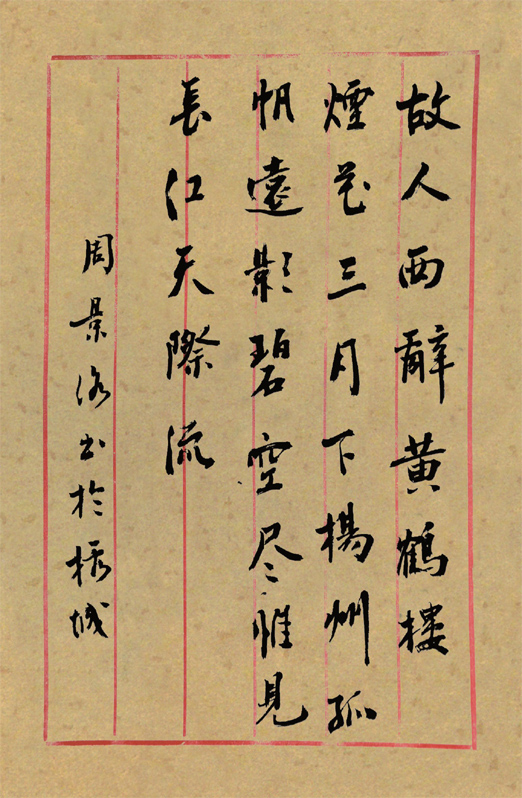 故人西辭黄鶴樓
煙花三月下楊州孤
帆遠影碧空尽惟見
長江天際流
周景洛书於榕城